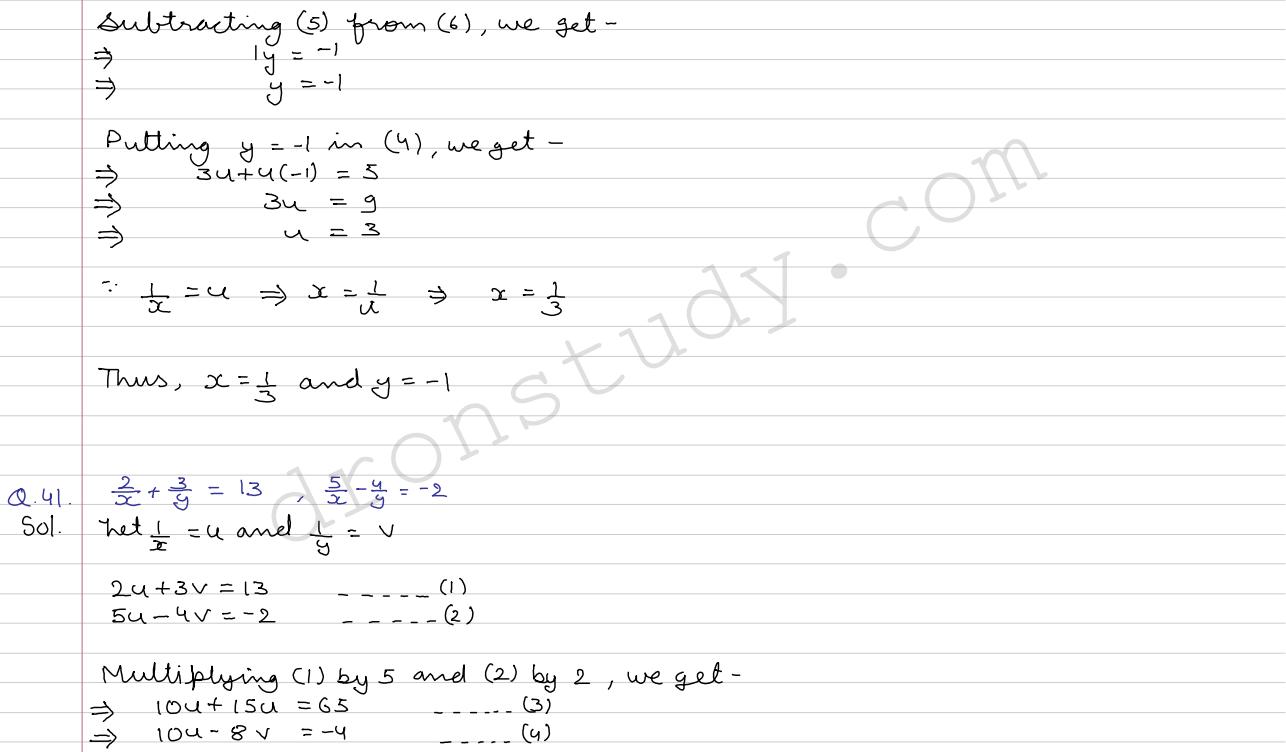 Subtracting (5) from (6), we get -
⇒ 1y = -1
⇒ y = -1
Putting y = -1 in (4), we get -
⇒ 3u+4(-1) = 5
⇒ 3u = 9
⇒ u = 3
∵ 1/x = u ⇒ x = 1/u ⇒ x = 1/3
Thus, x = 1/3 and y = -1
Q.41. 2/x + 3/y = 13 , 5/x - 4/y = -2
Sol. Let 1/x = u and 1/y = v
2u+3v = 13 ----- (1)
5u-4v = -2 ----- (2)
Multiplying (1) by 5 and (2) by 2, we get -
⇒ 10u+15u = 65 ------ (3)
⇒ 10u-8v = -4 ----- (4)
dronstudy.com